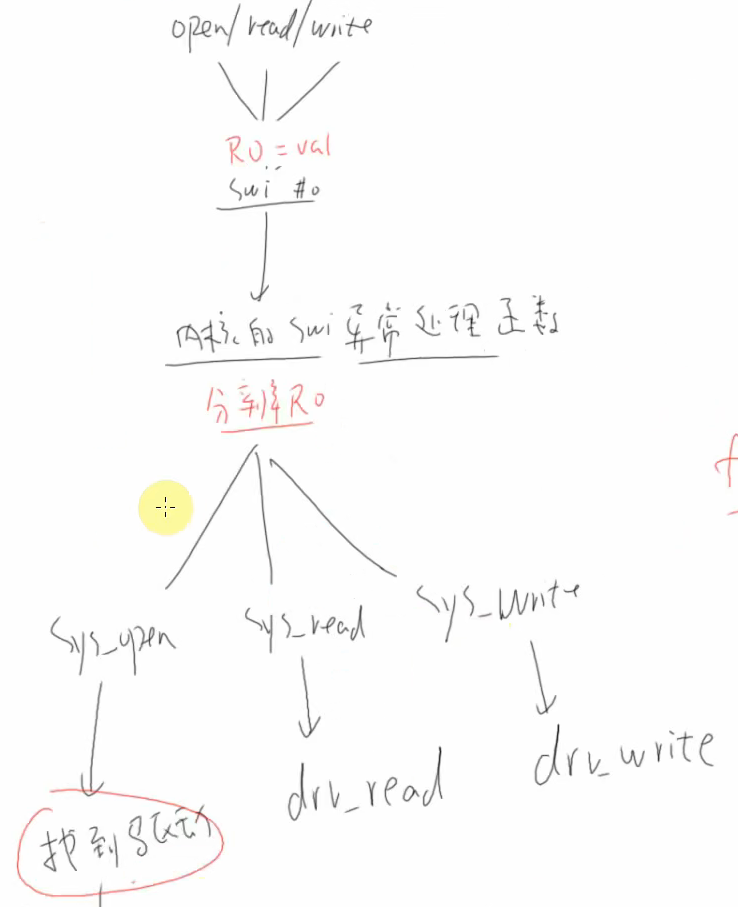 open/read/write
R0 = val
swi #0
内核的 swi 异常处理函数
分辨R0
sys_open
sys_read
sys_write
drv_read
drv_write
找到驱动